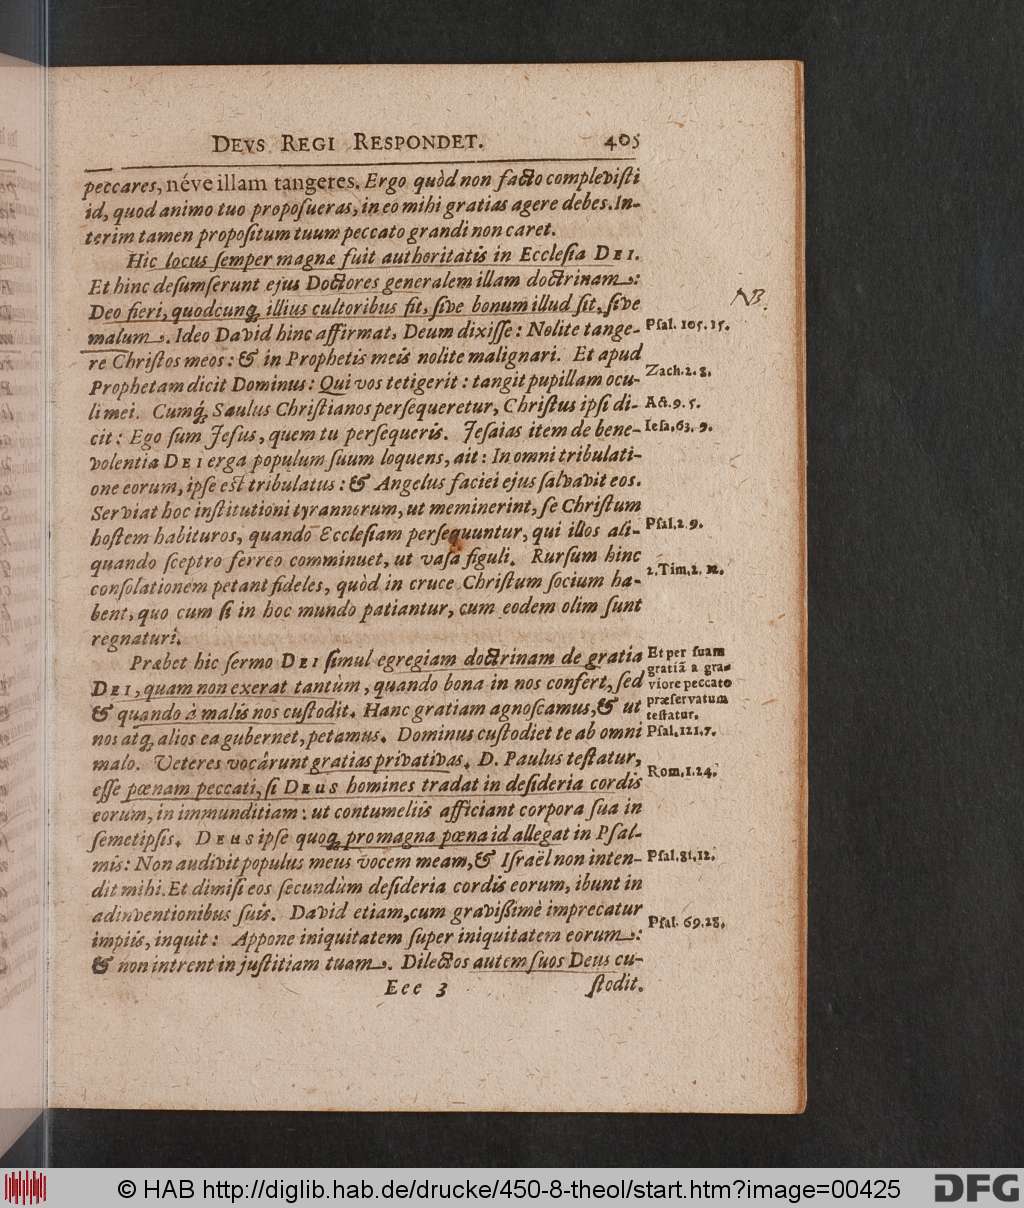 DEVS REGI RESPONDET. 405
peccares, néve illam tangeres. Ergo quòd non facto complevisti
id, quod animo tuo proposueras, in eo mihi gratias agere debes. In-
terim tamen propositum tuum peccato grandi non caret.
Hic locus semper magnæ fuit authoritatis in Ecclesia DEI.
Et hinc desumserunt ejus Doctores generalem illam doctrinam:
Deo fieri, quodcunq; illius cultoribus fit, sive bonum illud sit, sive
NB.
malum. Ideo David hinc affirmat, Deum dixisse: Nolite tange-
Psal. 105. 15.
re Christos meos: & in Prophetis meis nolite malignari. Et apud
Prophetam dicit Dominus: Qui vos tetigerit: tangit pupillam ocu-
Zach. 2. 8.
li mei. Cumq́; Saulus Christianos persequeretur, Christus ipsi di-
Act. 9. 5.
cit: Ego sum Jesus, quem tu persequeris. Jesaias item de bene-
Iesa. 63. 9.
volentia DEI erga populum suum loquens, ait: In omni tribulati-
one eorum, ipse est tribulatus: & Angelus faciei ejus salvavit eos.
Serviat hoc institutioni tyrannorum, ut meminerint, se Christum
hostem habituros, quando Ecclesiam persequuntur, qui illos ali-
Psal. 2. 9.
quando sceptro ferreo comminuet, ut vasa figuli. Rursum hinc
consolationem petant fideles, quòd in cruce Christum socium ha-
2. Tim. 2. 12.
bent, quo cum si in hoc mundo patiantur, cum eodem olim sunt
regnaturi.
Præbet hic sermo DEI simul egregiam doctrinam de gratia
Et per suam
gratiã a gra-
DEI, quam non exerat tantùm, quando bona in nos confert, sed
viore peccato
& quando à malis nos custodit. Hanc gratiam agnoscamus, & ut
præservatum
testatur.
nos atq; alios ea gubernet, petamus. Dominus custodiet te ab omni
Psal. 121. 7.
malo. Veteres vocârunt gratias privativas. D. Paulus testatur,
esse pœnam peccati, si DEUS homines tradat in desideria cordis
Rom. 1. 24.
eorum, in immunditiam: ut contumeliis afficiant corpora sua in
semetipsis. DEUS ipse quoq; pro magna pœna id allegat in Psal-
mis: Non audivit populus meus vocem meam, & Israël non inten-
Psal. 81. 12.
dit mihi. Et dimisi eos secundùm desideria cordis eorum, ibunt in
adinventionibus suis. David etiam, cum gravissimè imprecatur
impiis, inquit: Appone iniquitatem super iniquitatem eorum:
Psal. 69. 28.
& non intrent in justitiam tuam. Dilectos autem suos Deus cu-
Eee 3 stodit.
© HAB http://diglib.hab.de/drucke/450-8-theol/start.htm?image=00425
DFG